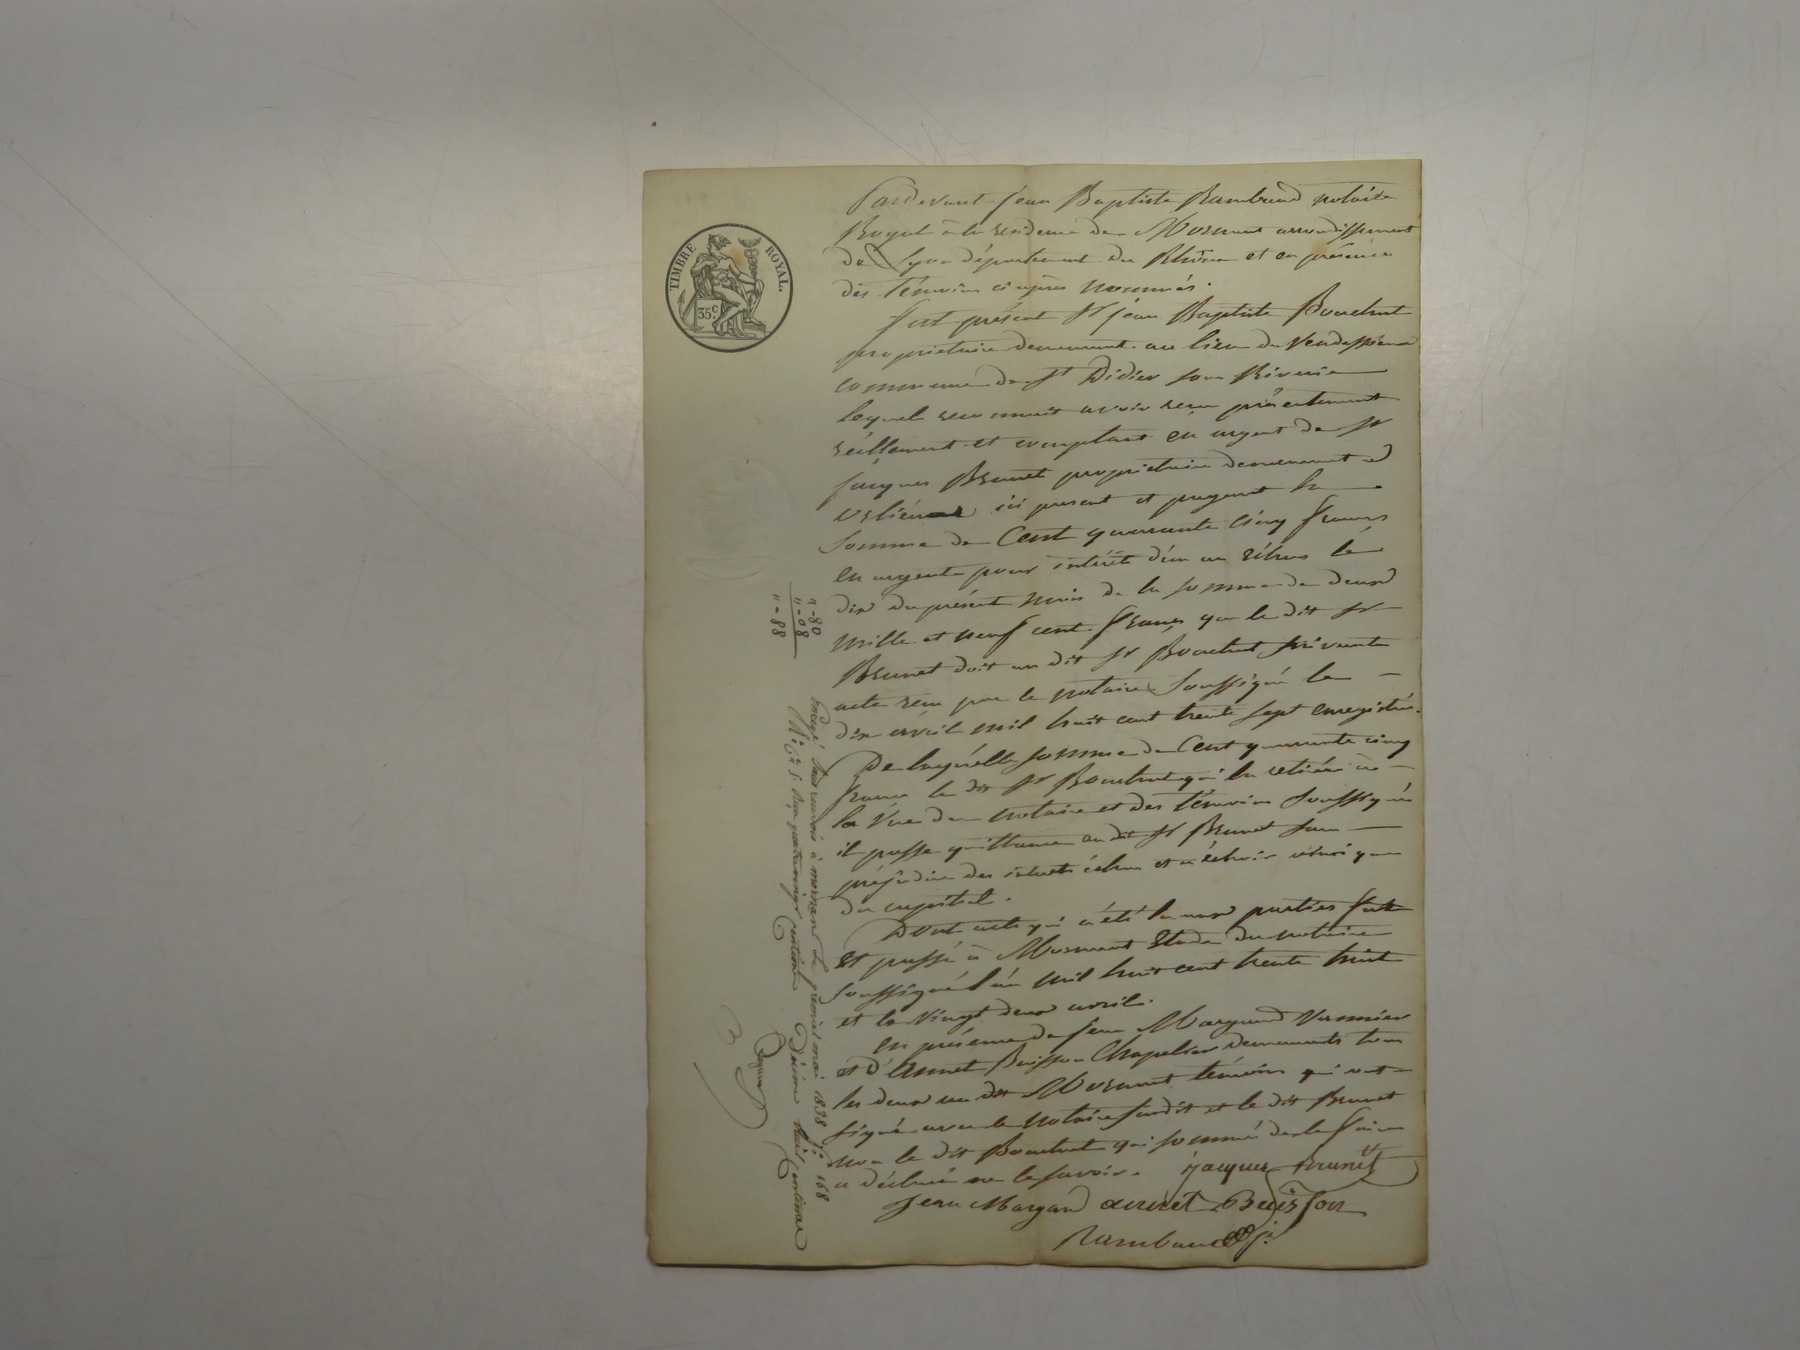 TIMBRE ROYAL.
35 c.
Pardevant Jean Baptiste Rambaud notaire
Royal à la residence de Mornant arrondissement
de Lyon département du Rhône et en présence
des témoins ci après nommés.
fut présent Sr jean Baptiste Bouchut
propriétaire demeurant au lieu de
commune de St Didier sou Riverie
lequel reconnait avoir recu présentement
réellement et comptant en argent de Sr
jacques Brunet propriétaire demeurant a
orliénas ici present et payant la
Somme de Cent quarante cinq francs
en argent pour intérêt d'un an échus le
dix du présent mois de la somme de deux
mille et neuf cent francs que le dit Sr
Brunet doit au dit Sr Bouchut suivant
acte recu par le notaire Soussigné le
dix avril mil huit cent trente sept enregistré.
De laquelle somme de Cent quarante cinq
francs le dit Sr Bouchut qui la retirée à
la Vue du notaire et des témoins Soussignés
il passe quittance au dit Sr Brunet sans
préjudice des intérêts échus et à échoir ainsi que
du capital.
Dont acte qui a été lu aux parties fait
et passé à Mornant Etude du notaire
soussigné l'an mil huit cent trente huit
et le Vingt deux avril.
en présence de Jean Margand
et d'Annet Buisson Chapelier demeurants tous
les deux au dit Mornant témoins qui ont
signé avec le notaire susdit et le dit Brunet
non le dit Bouchut qui sommé de le faire
a déclaré ne le savoir.
jacques Brunet
Jean Margand annet Buisson
Rambaud
" - 80
" - 08
" - 88
à mornant le premier mai 1838 fo 168
Reçu quatrevingt centimes Décime huit centimes